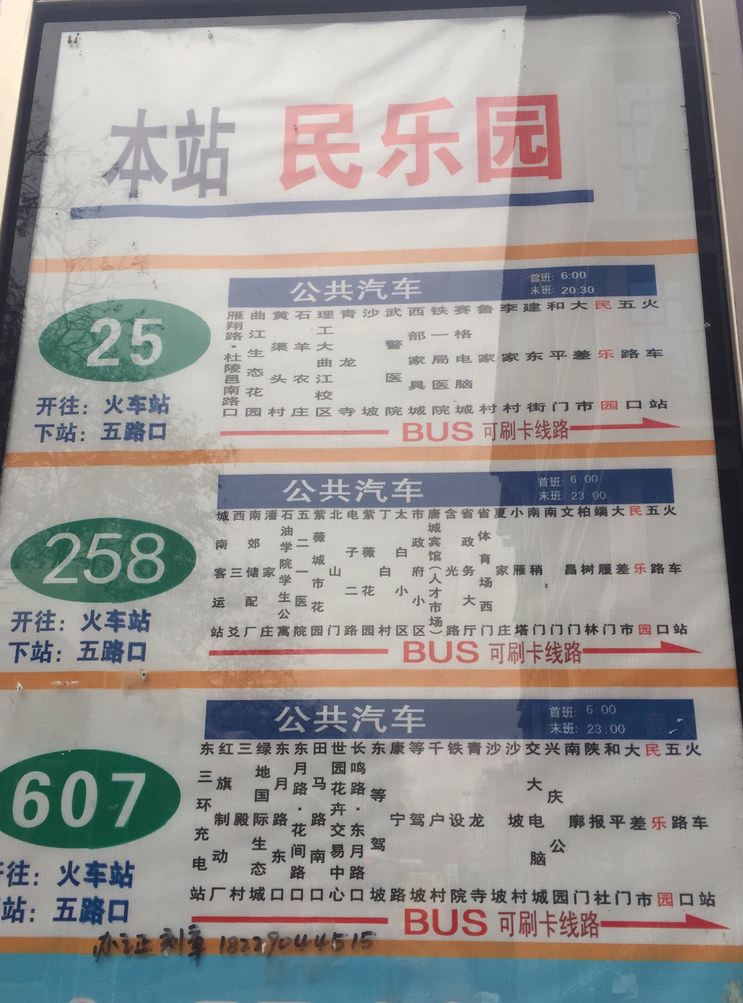 本站 民乐园
25
开往：火车站
下站：五路口
公共汽车
首班: 6:00
末班: 20:30
雁翔路·杜陵邑南路口
曲江生态花园
黄渠头村
石羊农庄
理工大曲江校区
青龙寺
沙坡
武警医院
西部家具城
铁一局医院
赛格电脑城
鲁家村
李家村
建东街
和平门
大差市
民乐园
五路口
火车站
BUS 可刷卡线路
258
开往：火车站
下站：五路口
公共汽车
首班: 6:00
末班: 23:00
城南客运站
西三爻
南郊储配厂
潘家庄
石油学院学生公寓
五二一医院
紫薇城市花园
北山门
电子二路
紫薇花园
丁白村
太白小区
市政府小区
唐城宾馆(人才市场)
含光路
省政务大厅
省体育场西门
夏家庄
小雁塔
南稍门
南门
文昌门
柏树林
端履门
大差市
民乐园
五路口
火车站
BUS 可刷卡线路
607
往：火车站
站：五路口
公共汽车
首班: 6:00
末班: 23:00
东三环充电站
红旗制动厂
三殿村
绿地国际生态城
东月路东口
东月路·花间路口
田马路南口
世园花卉交易中心
长鸣路·东月路口
东等驾坡
康宁路
等驾坡
千户村
铁设院
青龙寺
沙坡
沙坡村
交大电脑城
兴庆公园
南廓门
陕报社
和平门
大差市
民乐园
五路口
火车站
BUS 可刷卡线路
办证 刻章 18229044515